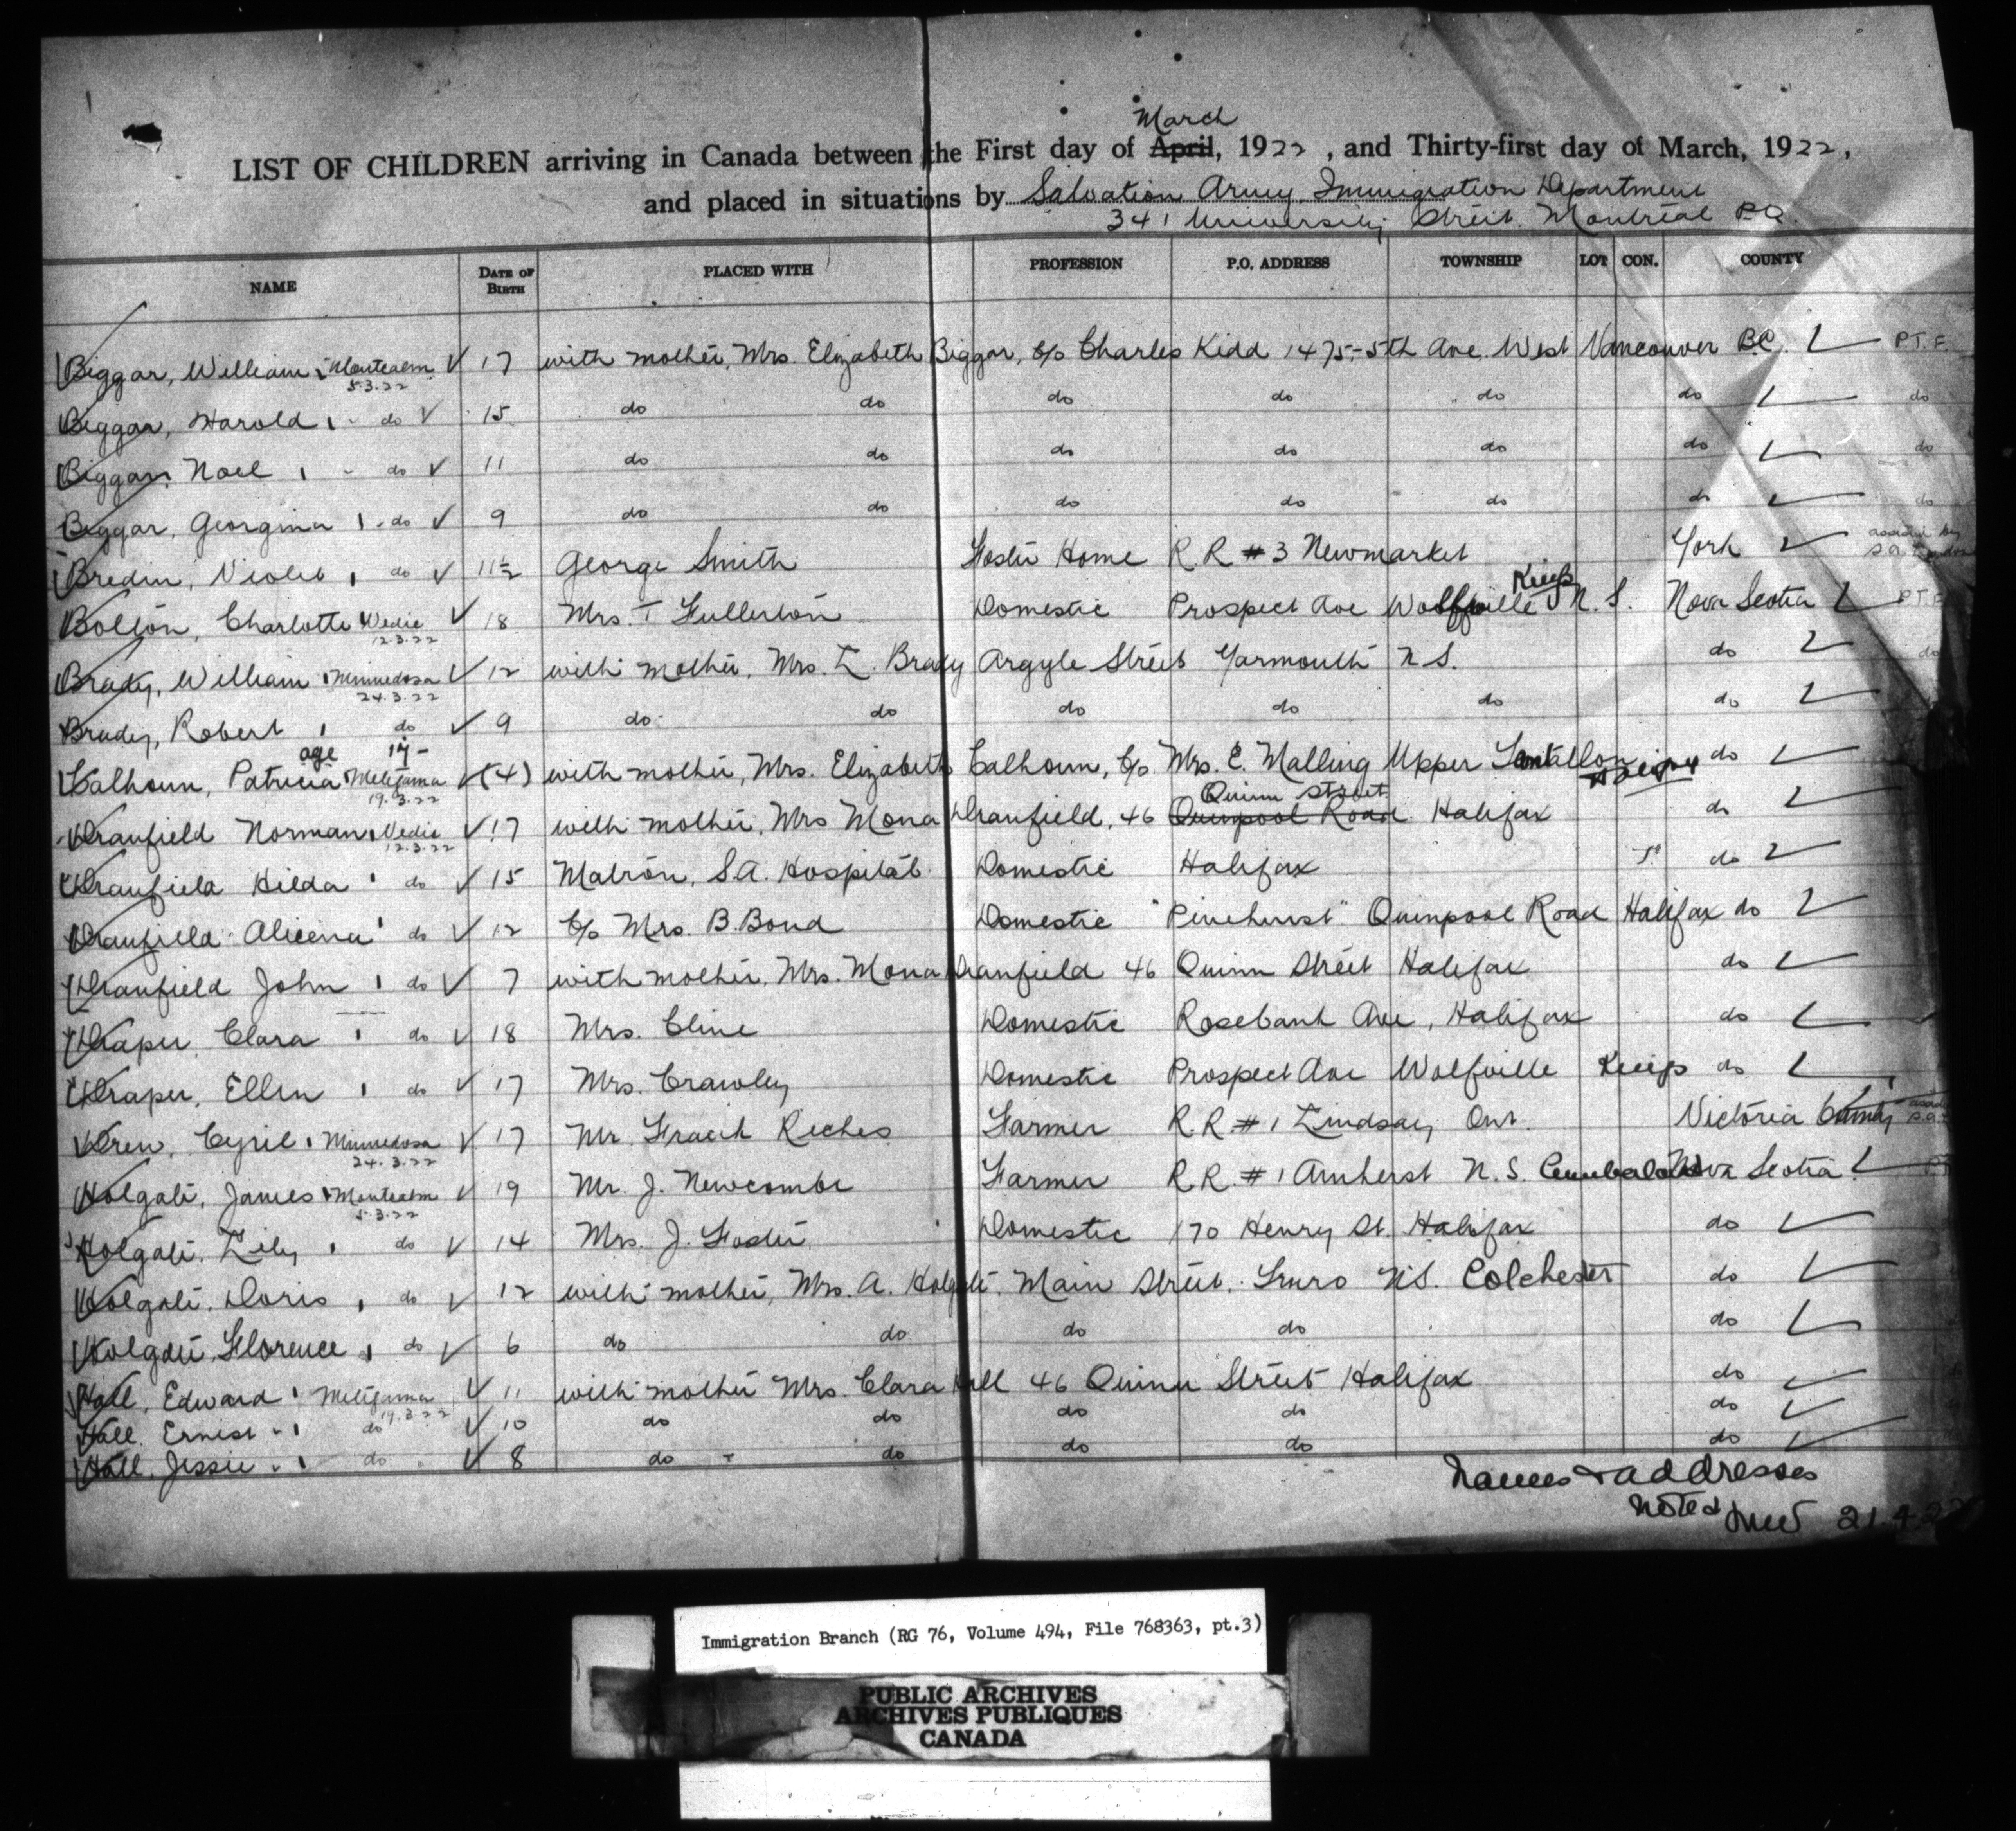 March
LIST OF CHILDREN arriving in Canada between the First day of April, 1922, and Thirty-first day of March, 1922,
and placed in situations by Salvation Army, Immigration Department
341 University Street Montreal P.Q.
NAME DATE OF BIRTH PLACED WITH PROFESSION P.O. ADDRESS TOWNSHIP LOT CON. COUNTY
Biggar, William Montcalm 17 with mother, Mrs. Elizabeth Biggar, c/o Charles Kidd 1475-5th Ave West Vancouver B.C. P.T.F.
5.3.22
Biggar, Harold do 15 do do do do do do do
Biggar, Noel do 11 do do do do do do do
Biggar, Georgina do 9 do do do do do do do
Bredin, Violet do 11½ George Smith Foster Home R.R #3 Newmarket York
Kings
Bolton, Charlotte Vedic 18 Mrs. T Fullerton Domestic Prospect Ave Wolfville N.S. Nova Scotia
12.3.22
Brady, William Minnedosa 12 with mother, Mrs. L. Brady Argyle Street Yarmouth N S. do do
24.3.22
Brady, Robert do 9 do do do do do do
age 14-
Calhoun, Patricia Metagama (4) with mother, Mrs. Elizabeth Calhoun, c/o Mrs. E. Malling Upper Tantallon do
19.3.22
Quinn Street
Dranfield Norman Vedic 17 with mother, Mrs Mona Dranfield, 46 Quinpool Road Halifax do
12.3.22
Dranfield Hilda do 15 Matron, S.A. Hospital Domestic Halifax do
Dranfield Alicena do 12 c/o Mrs. B. Bond Domestic "Pinehurst" Quinpool Road Halifax do
Dranfield John do 7 with mother, Mrs. Mona Dranfield 46 Quinn Street Halifax do
Draper, Clara do 18 Mrs. Cline Domestic Rosebank Ave, Halifax do
Draper, Ellen do 17 Mrs. Crawley Domestic Prospect Ave Wolfville Kings do
Drew, Cyril Minnedosa 17 Mr. Riches Farmer R.R #1 Lindsay Ont. Victoria County
24.3.22
Holgate, James Montcalm 19 Mr. J. Newcombe Farmer R.R. #1 Amherst N.S. Nova Scotia
5.3.22
Holgate, Lily do 14 Mrs. J. Foster Domestic 170 Henry St. Halifax do
Holgate, Doris do 12 with mother, Mrs. A. Holgate. Main Street. Truro N.S. Colchester do
Holgate, Florence do 6 do do do do do
Hall, Edward Metagama 11 with mother Mrs. Clara Hall 46 Quinn Street Halifax do
19.3.22
Hall, Ernest do 10 do do do do do
Hall, Jessie do 8 do do do do do
Names & addresses
Noted
21.4.22
Immigration Branch (RG 76, Volume 494, File 768363, pt.3)
PUBLIC ARCHIVES
ARCHIVES PUBLIQUES
CANADA